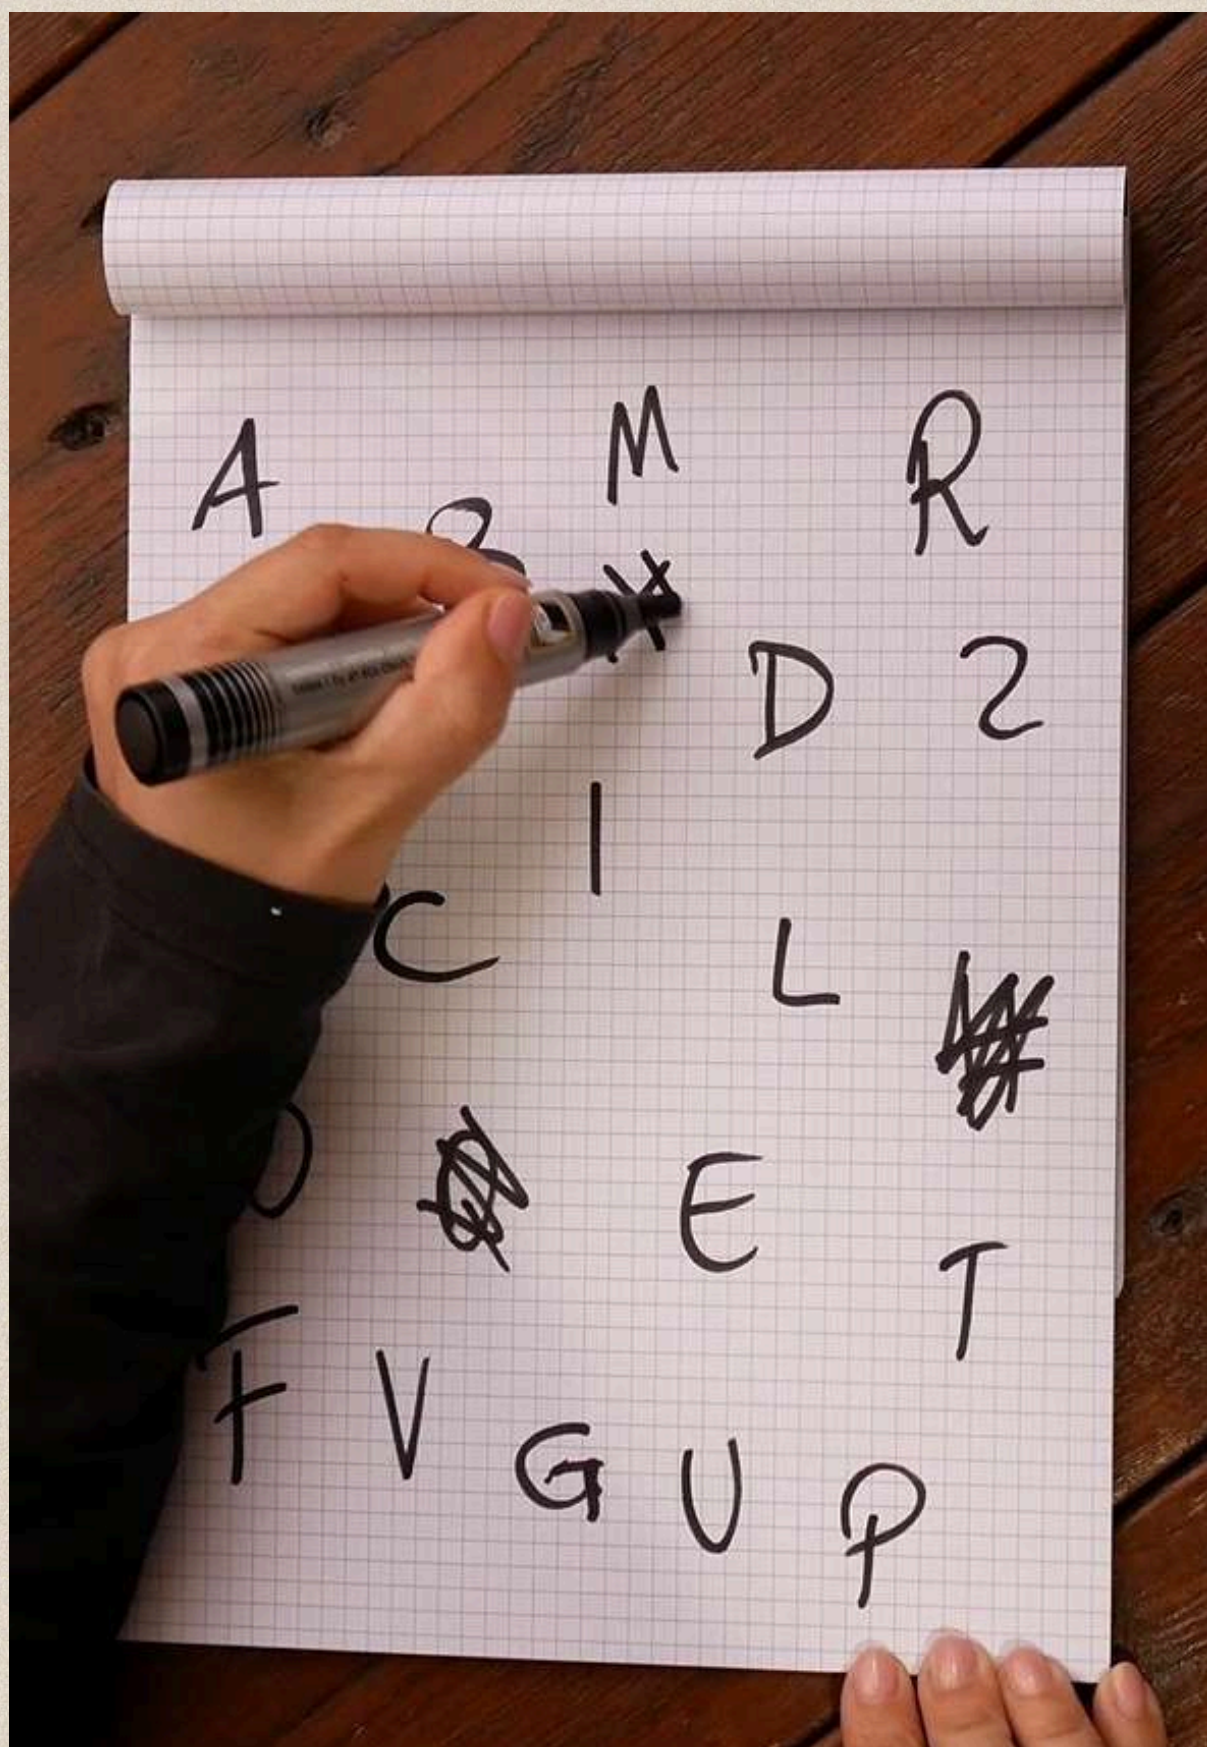 A M R
D 2
I
C L
E
T
F V
G U P